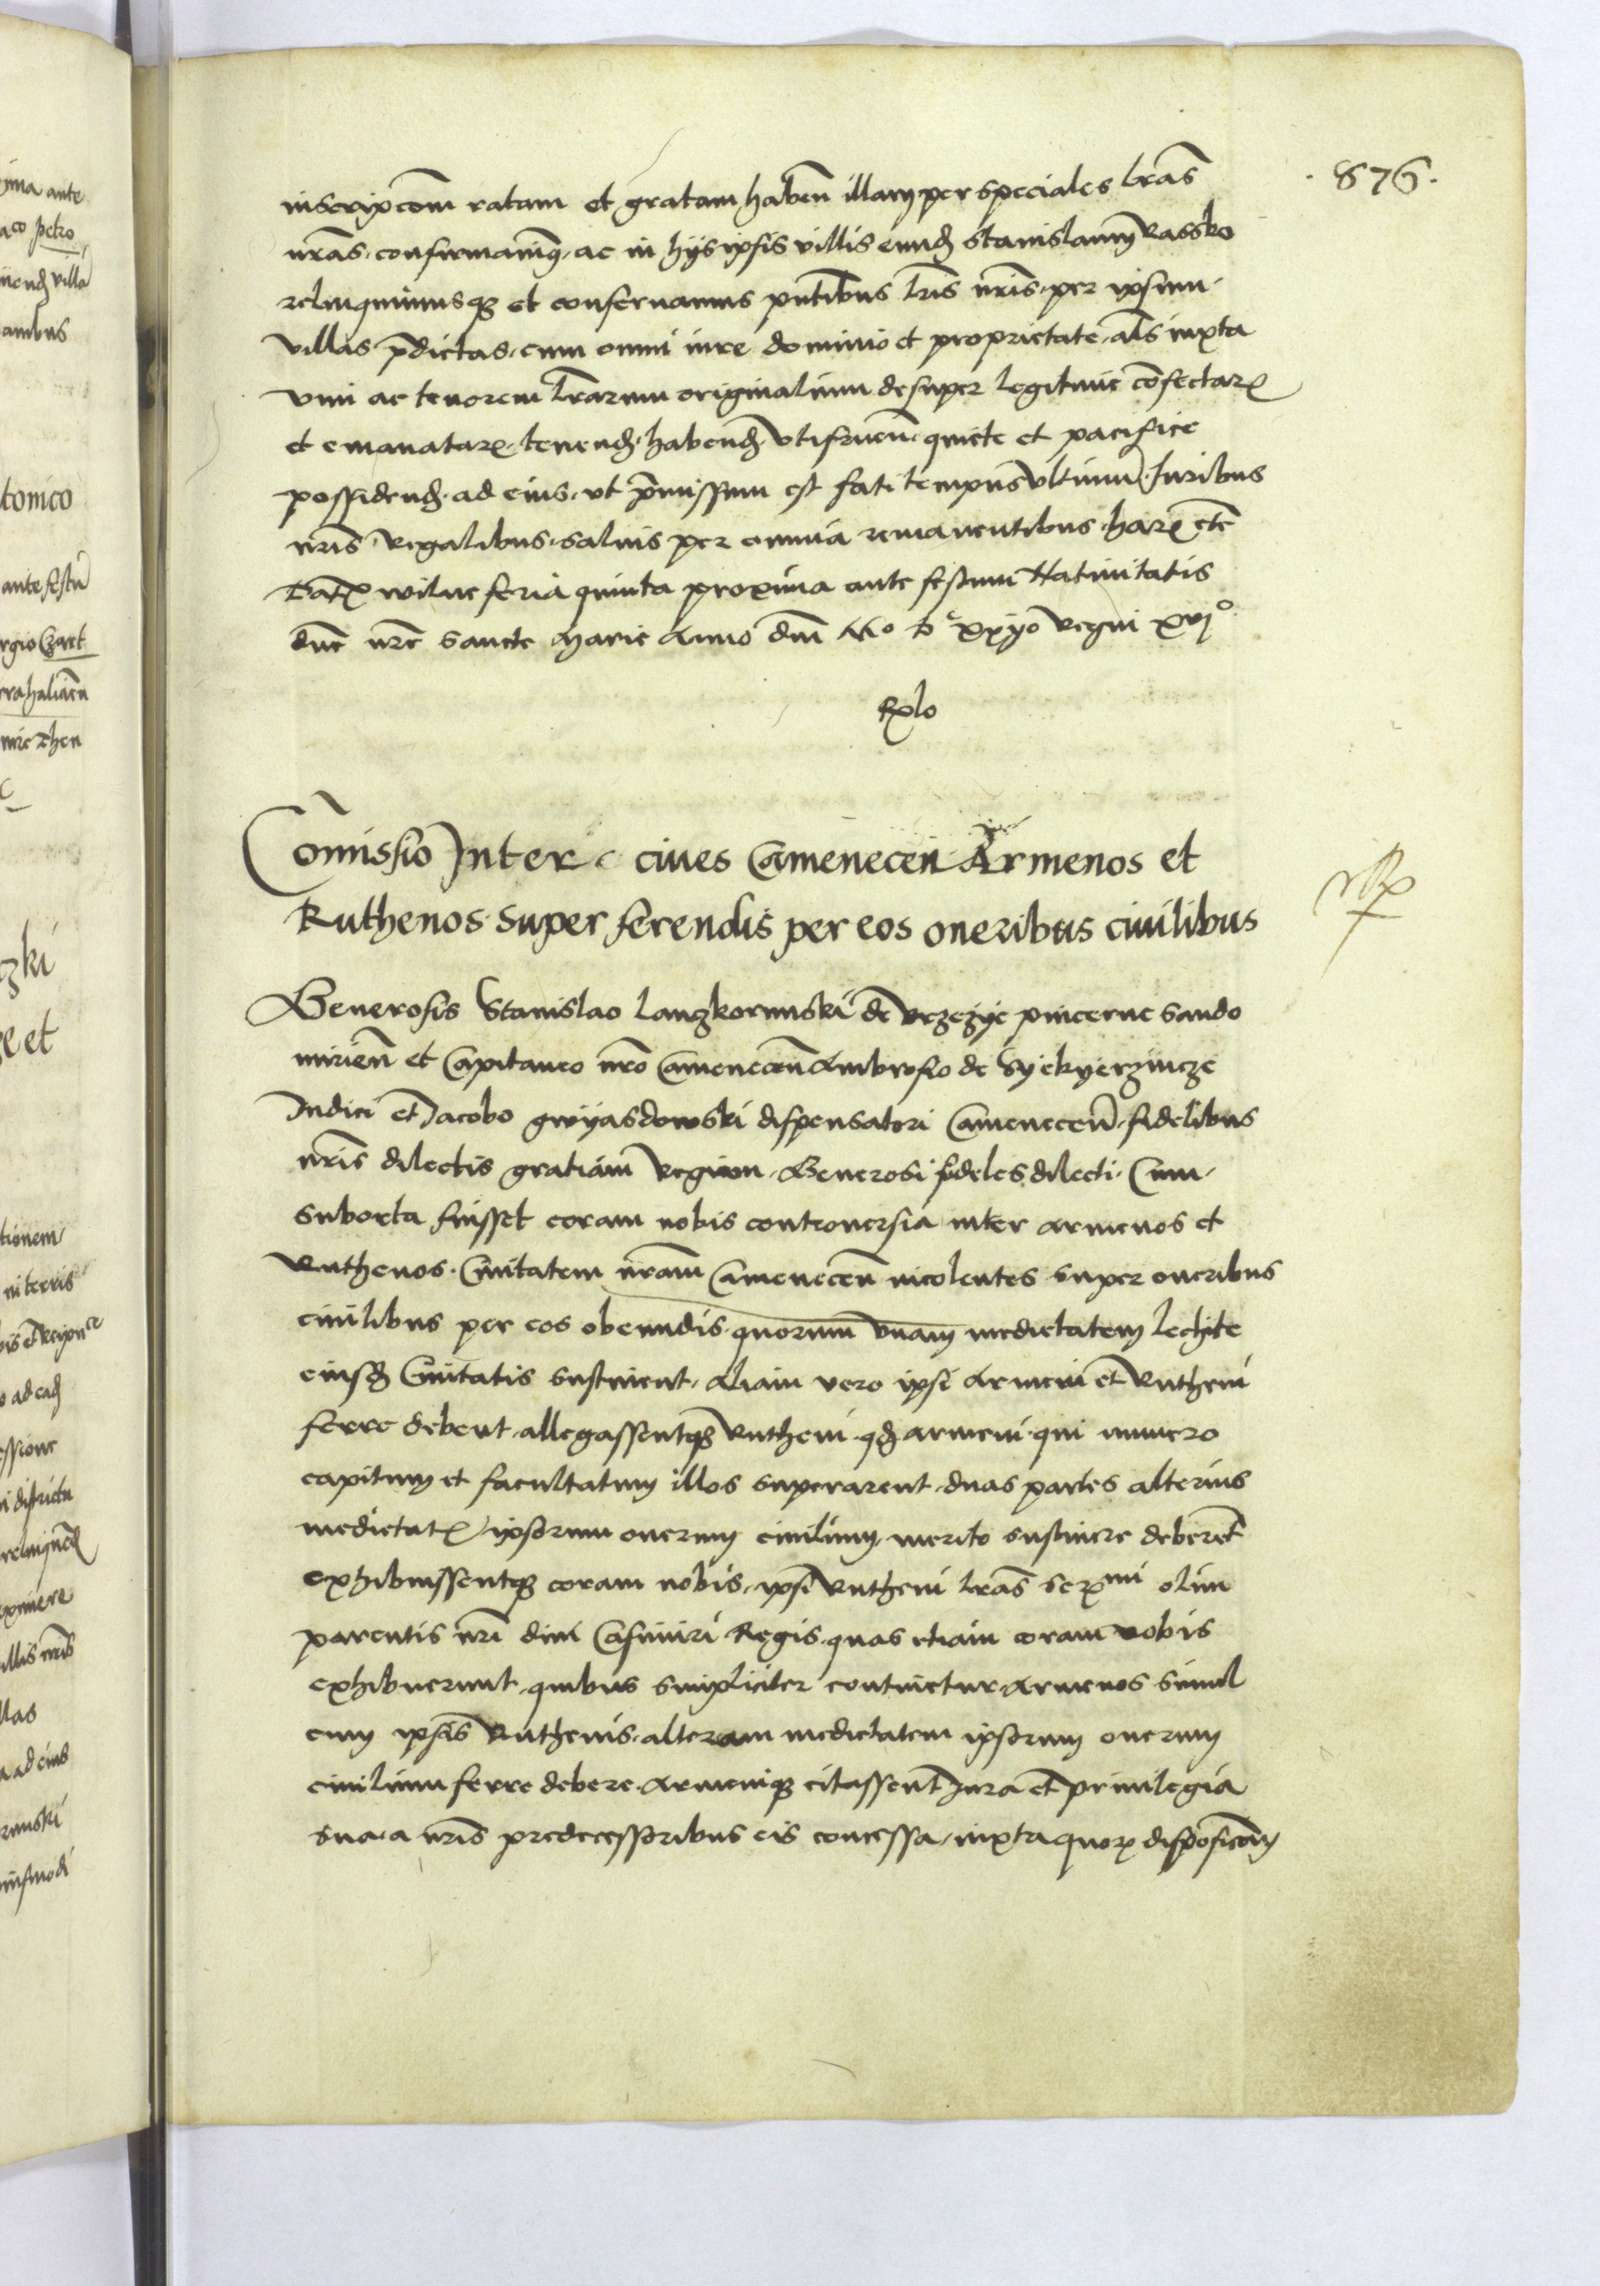 876.
inscripcoem ratam et gratam haben illam per speciales lras
nras confirmamus ac in hys ipsis villis eund Stanislaum Rassko
relinquimusq et conservamus pntibus lris nris per ipsum
villas pdictas cum omni iure dominio et proprietate als iuxta
vim ac tenorem lrarum originalium desuper legitime confectar
et emanatar tenend habend utifruen quiete et pacifice
possidend ad eius ut pmissum est fati tempus ultimum Iuribus
nris regalibus salvis per omnia remanentibus harz etc
Dat wilne feria quinta proxima ante festum Nativitatis
dne nre sancte Marie Anno dni Mo Dc xxijo regni xvjo
Rlo
Comissio Inter cives Camenecen Armenos et
Ruthenos super ferendis per eos oneribus civilibus
Generosis Stanislao Lanczkorunski de Brzezye pincerne Sando
mirien et Capitaneo nro Camenecen Ambrosio de Syekyerzincze
Iudici et Iacobo gwyasdowski dispensatori Camenecen fidelibus
nris dilectis gratiam regiam Generosi fideles dilecti Cum
suborta fuisset coram nobis controversia inter armenos et
ruthenos Civitatem nram Camenecen incolentes super oneribus
civilibus per eos obeundis quorum unam medietatem lechite
eiusd Civitatis sustinent aliam vero ipsi Armeni et Rutheni
ferre debent allegassentq Rutheni qd armeni qui numero
capitum et facultatum illos superarent duas partes alterius
medietatis ipsorum onerum civilium merito sustinere deberet
exhibuissentq coram nobis ipsi Rutheni lras sermi olim
parentis nri divi Casimiri Regis quas etiam coram vobis
exhibuerunt quibus simpliciter continetur Armenos simul
cum ipsis Ruthenis alteram medietatem ipsorum onerum
civilium ferre debere Armeniq citassent Iura et privilegia
sua a nris predecessoribus eis concessa iuxta quor disposicoem